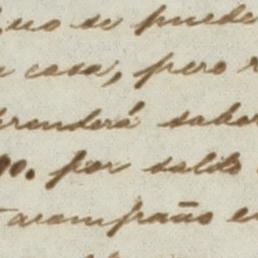 que se puede
casa, pero
prenderá saber
go. por saldo
acompaño en